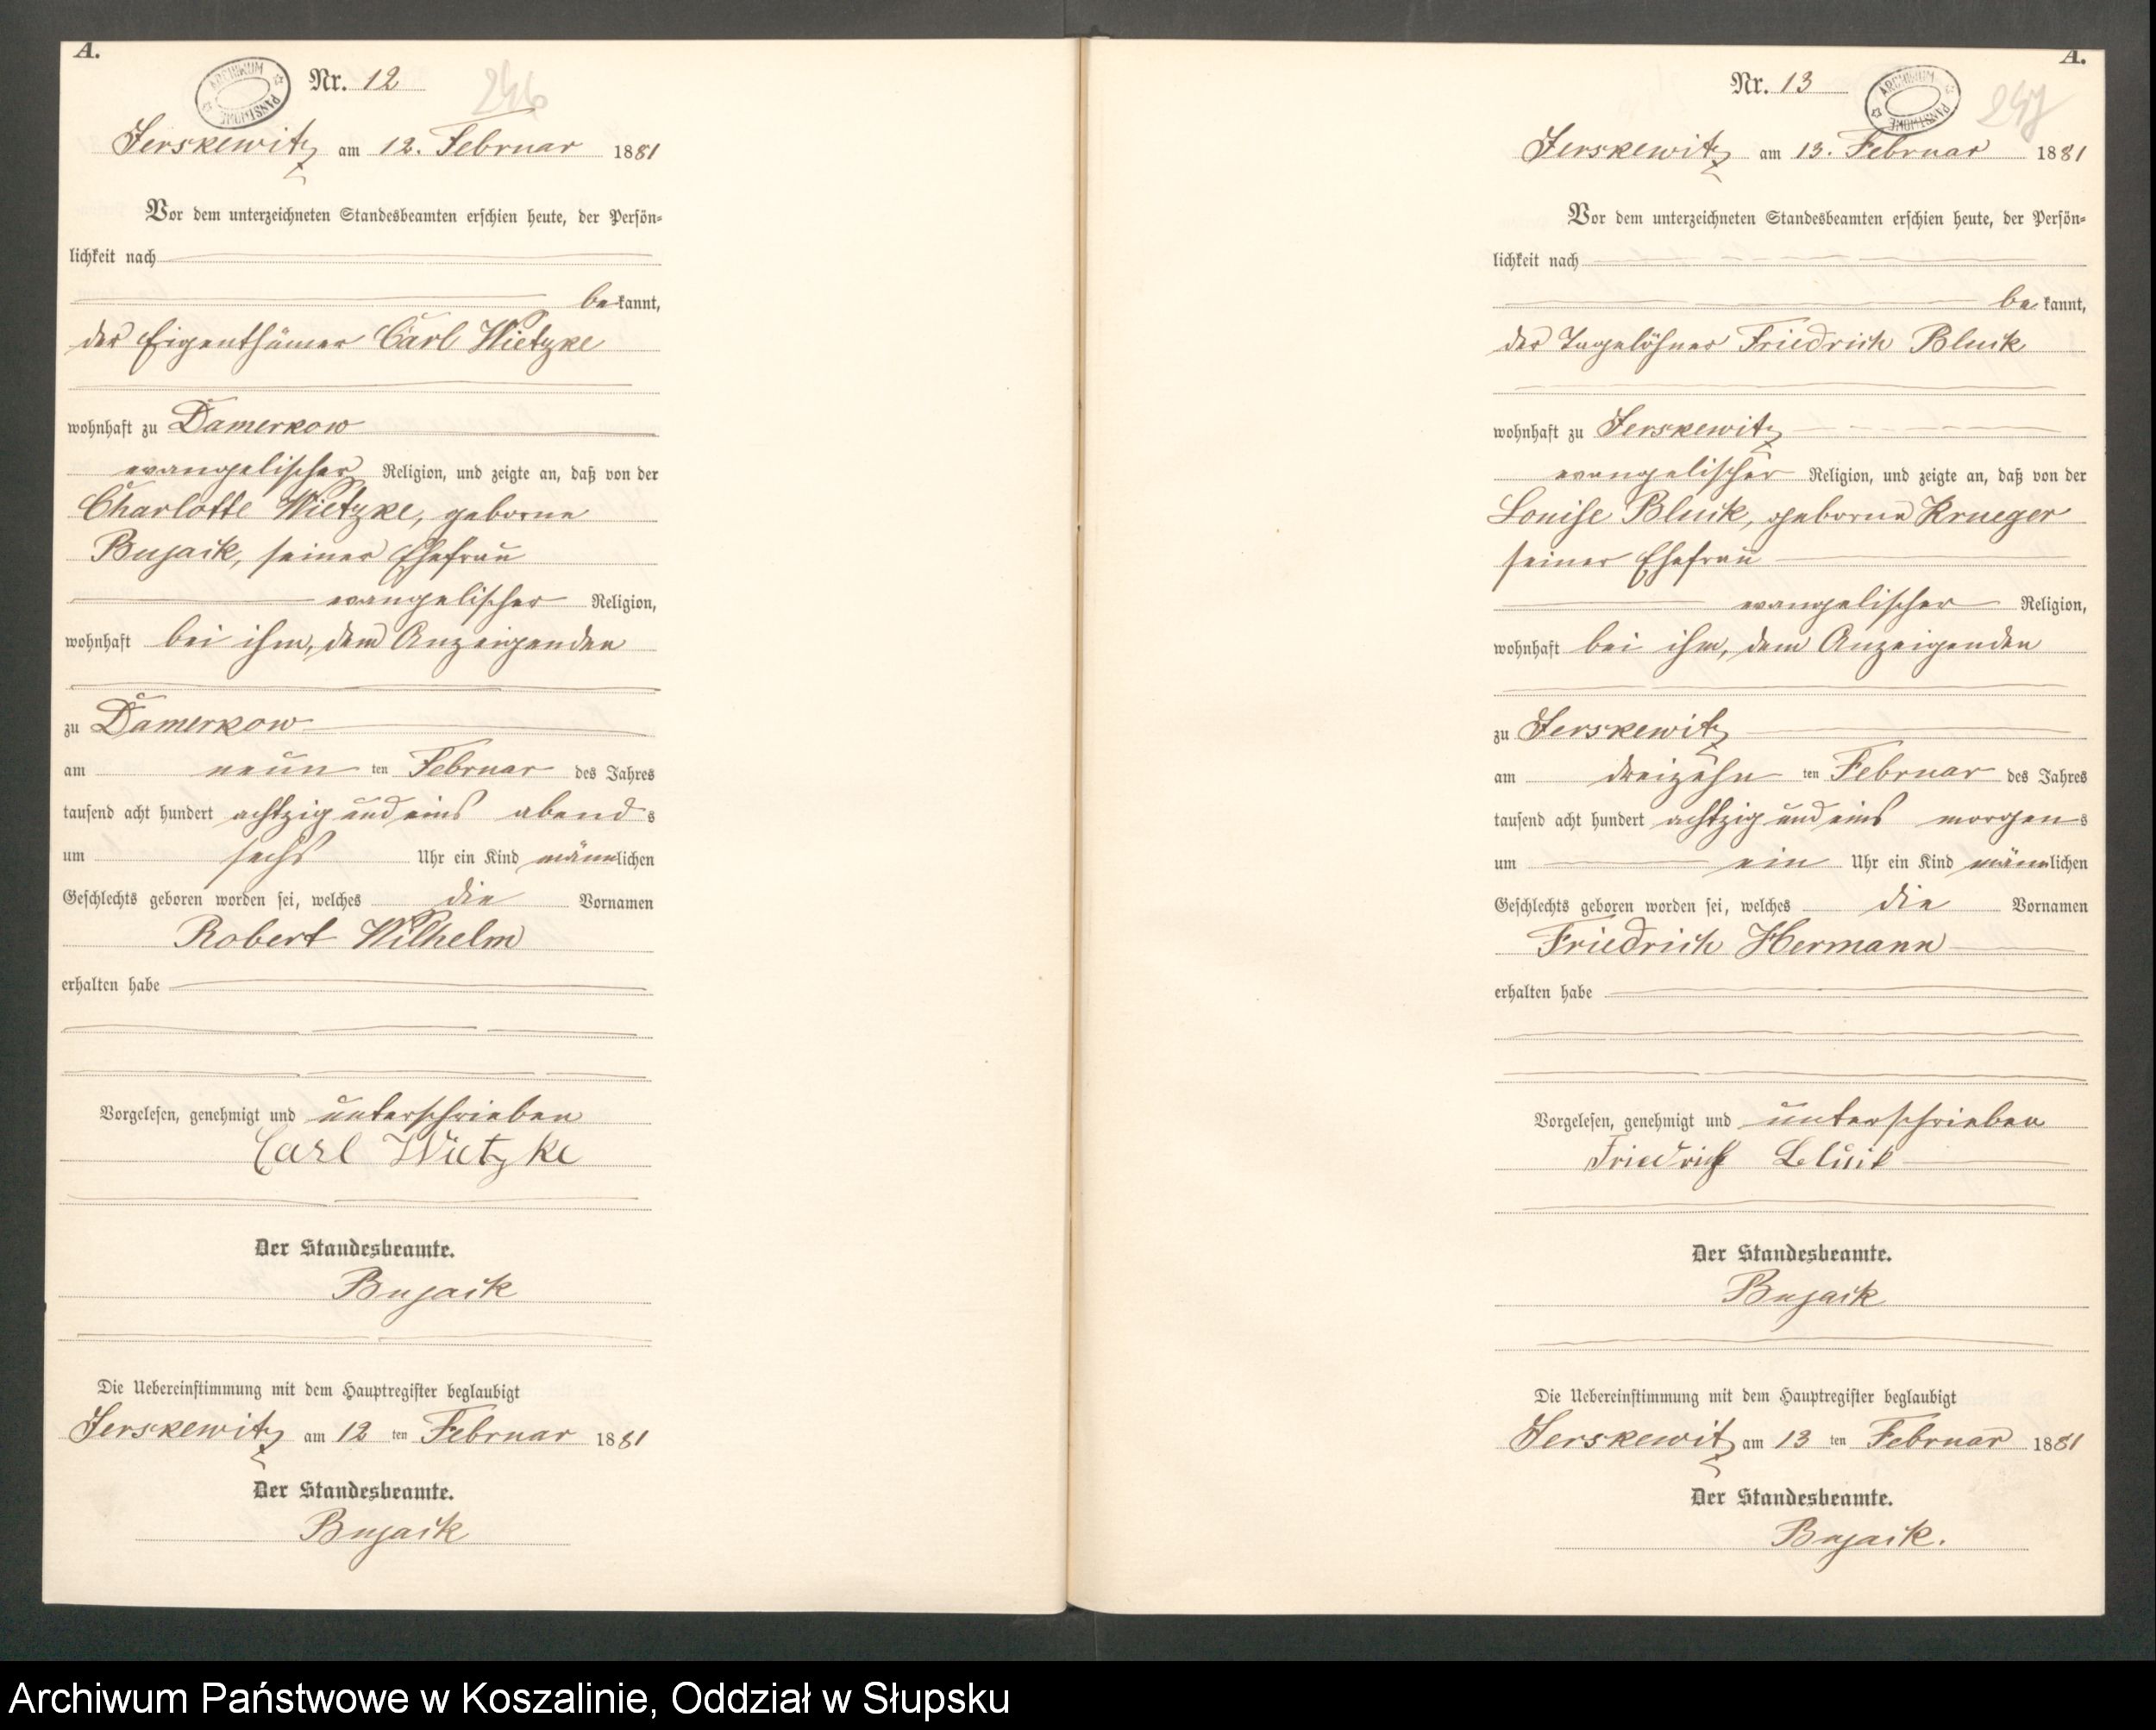 A.
ARCHIWUM PAŃSTWOWE
Nr. 12
246
Jerskewitz am 12. Februar 1881
Vor dem unterzeichneten Standesbeamten erschien heute, der Persön-
lichkeit nach
bekannt,
der Eigenthümer Carl Wietzke
wohnhaft zu Damerkow
evangelischer Religion, und zeigte an, daß von der
Charlotte Wietzke, geborne
Bujack, seiner Ehefrau
evangelischer Religion,
wohnhaft bei ihm, dem Anzeigenden
zu Damerkow
am neun ten Februar des Jahres
tausend acht hundert achtzig und eins abends
um sechs Uhr ein Kind männlichen
Geschlechts geboren worden sei, welches die Vornamen
Robert Wilhelm
erhalten habe
Vorgelesen, genehmigt und unterschrieben
Carl Wietzke
Der Standesbeamte.
Bujack
Die Uebereinstimmung mit dem Hauptregister beglaubigt
Jerskewitz am 12 ten Februar 1881
Der Standesbeamte.
Bujack
A.
Nr. 13
ARCHIWUM PAŃSTWOWE
247
Jerskewitz am 13. Februar 1881
Vor dem unterzeichneten Standesbeamten erschien heute, der Persön-
lichkeit nach
bekannt,
der Tagelöhner Friedrich Bluck
wohnhaft zu Jerskewitz
evangelischer Religion, und zeigte an, daß von der
Louise Bluck, geborne Krueger
seiner Ehefrau
evangelischer Religion,
wohnhaft bei ihm, dem Anzeigenden
zu Jerskewitz
am dreizehn ten Februar des Jahres
tausend acht hundert achtzig und eins morgens
um ein Uhr ein Kind männlichen
Geschlechts geboren worden sei, welches die Vornamen
Friedrich Hermann
erhalten habe
Vorgelesen, genehmigt und unterschrieben
Friedrich Bluck
Der Standesbeamte.
Bujack
Die Uebereinstimmung mit dem Hauptregister beglaubigt
Jerskewitz am 13 ten Februar 1881
Der Standesbeamte.
Bujack.
Archiwum Państwowe w Koszalinie, Oddział w Słupsku